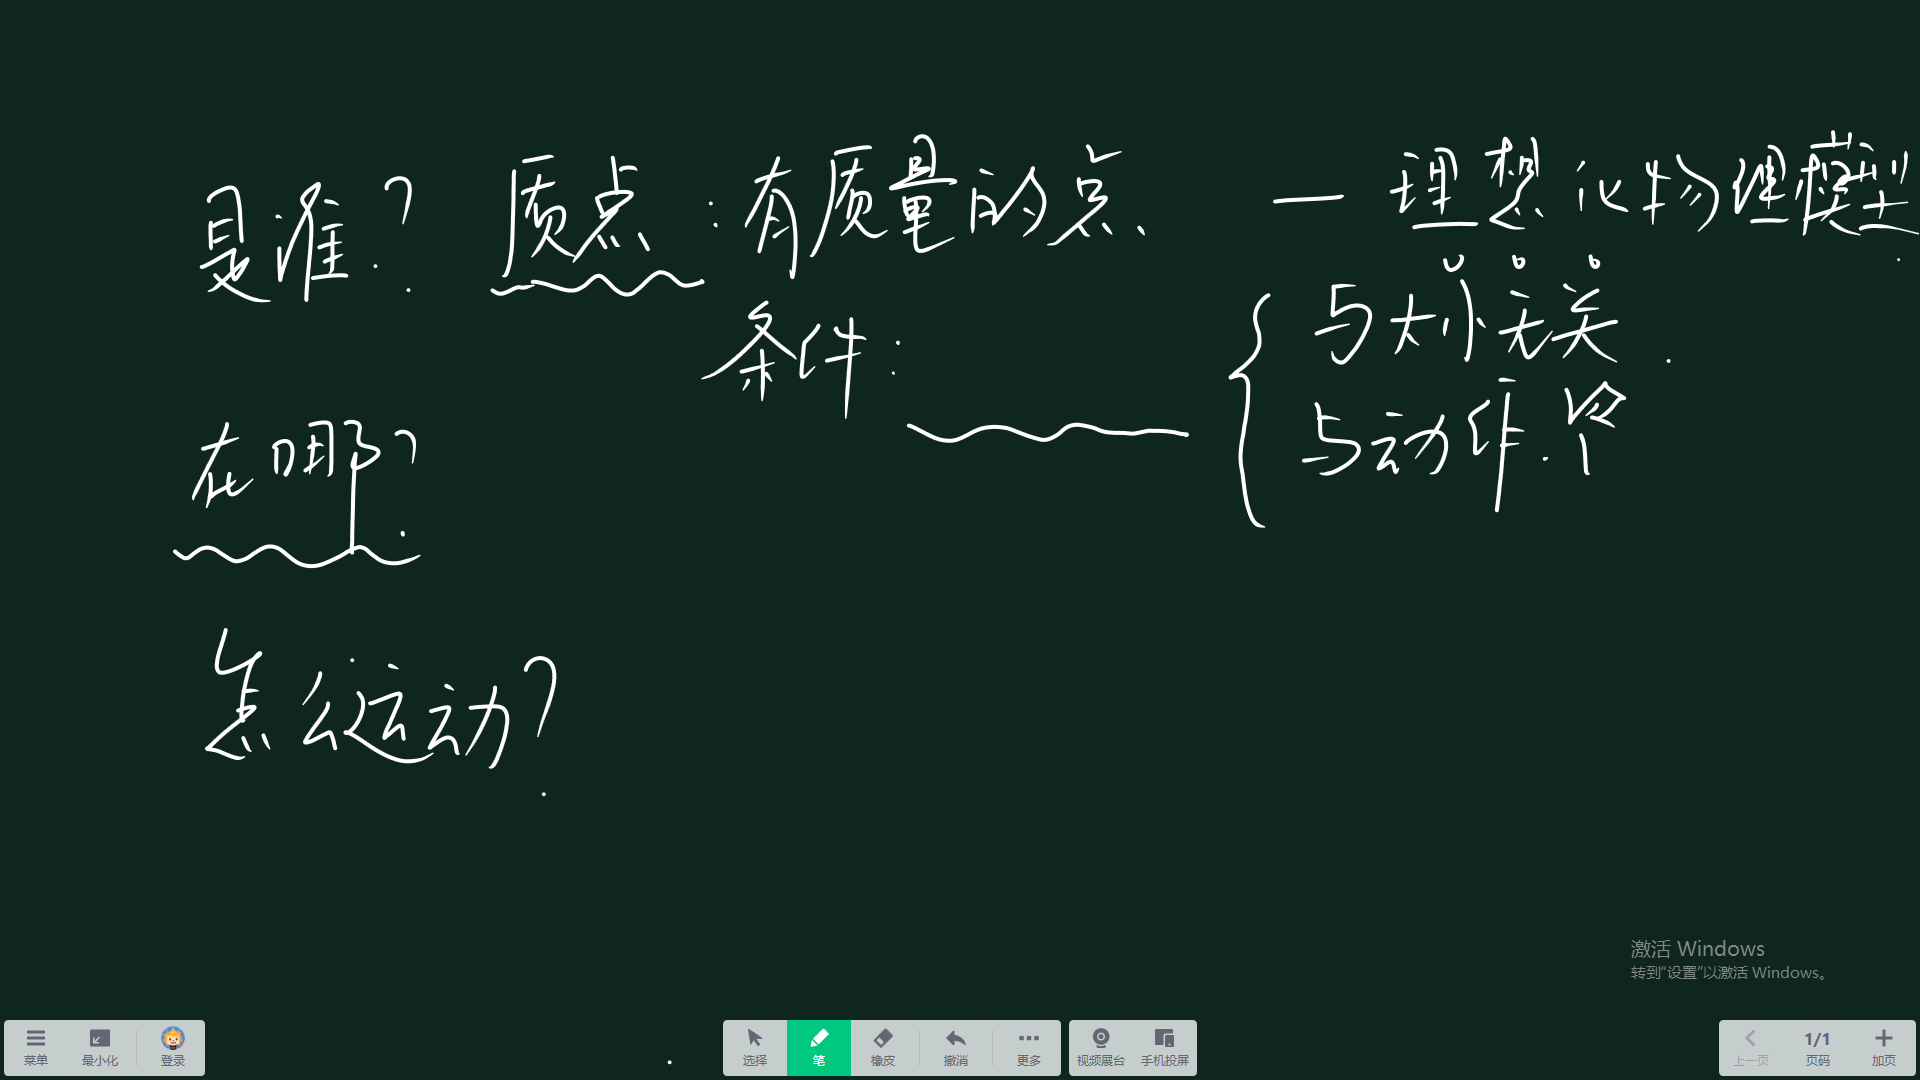 是谁? 质点:有质量的点. — 理想化物理模型.
条件:
与大小无关.
与动作.
在哪?
怎么运动?
激活 Windows
转到"设置"以激活 Windows。
菜单 最小化 登录 选择 笔 橡皮 撤消 更多 视频展台 手机投屏 上一页 1/1 页码 加页